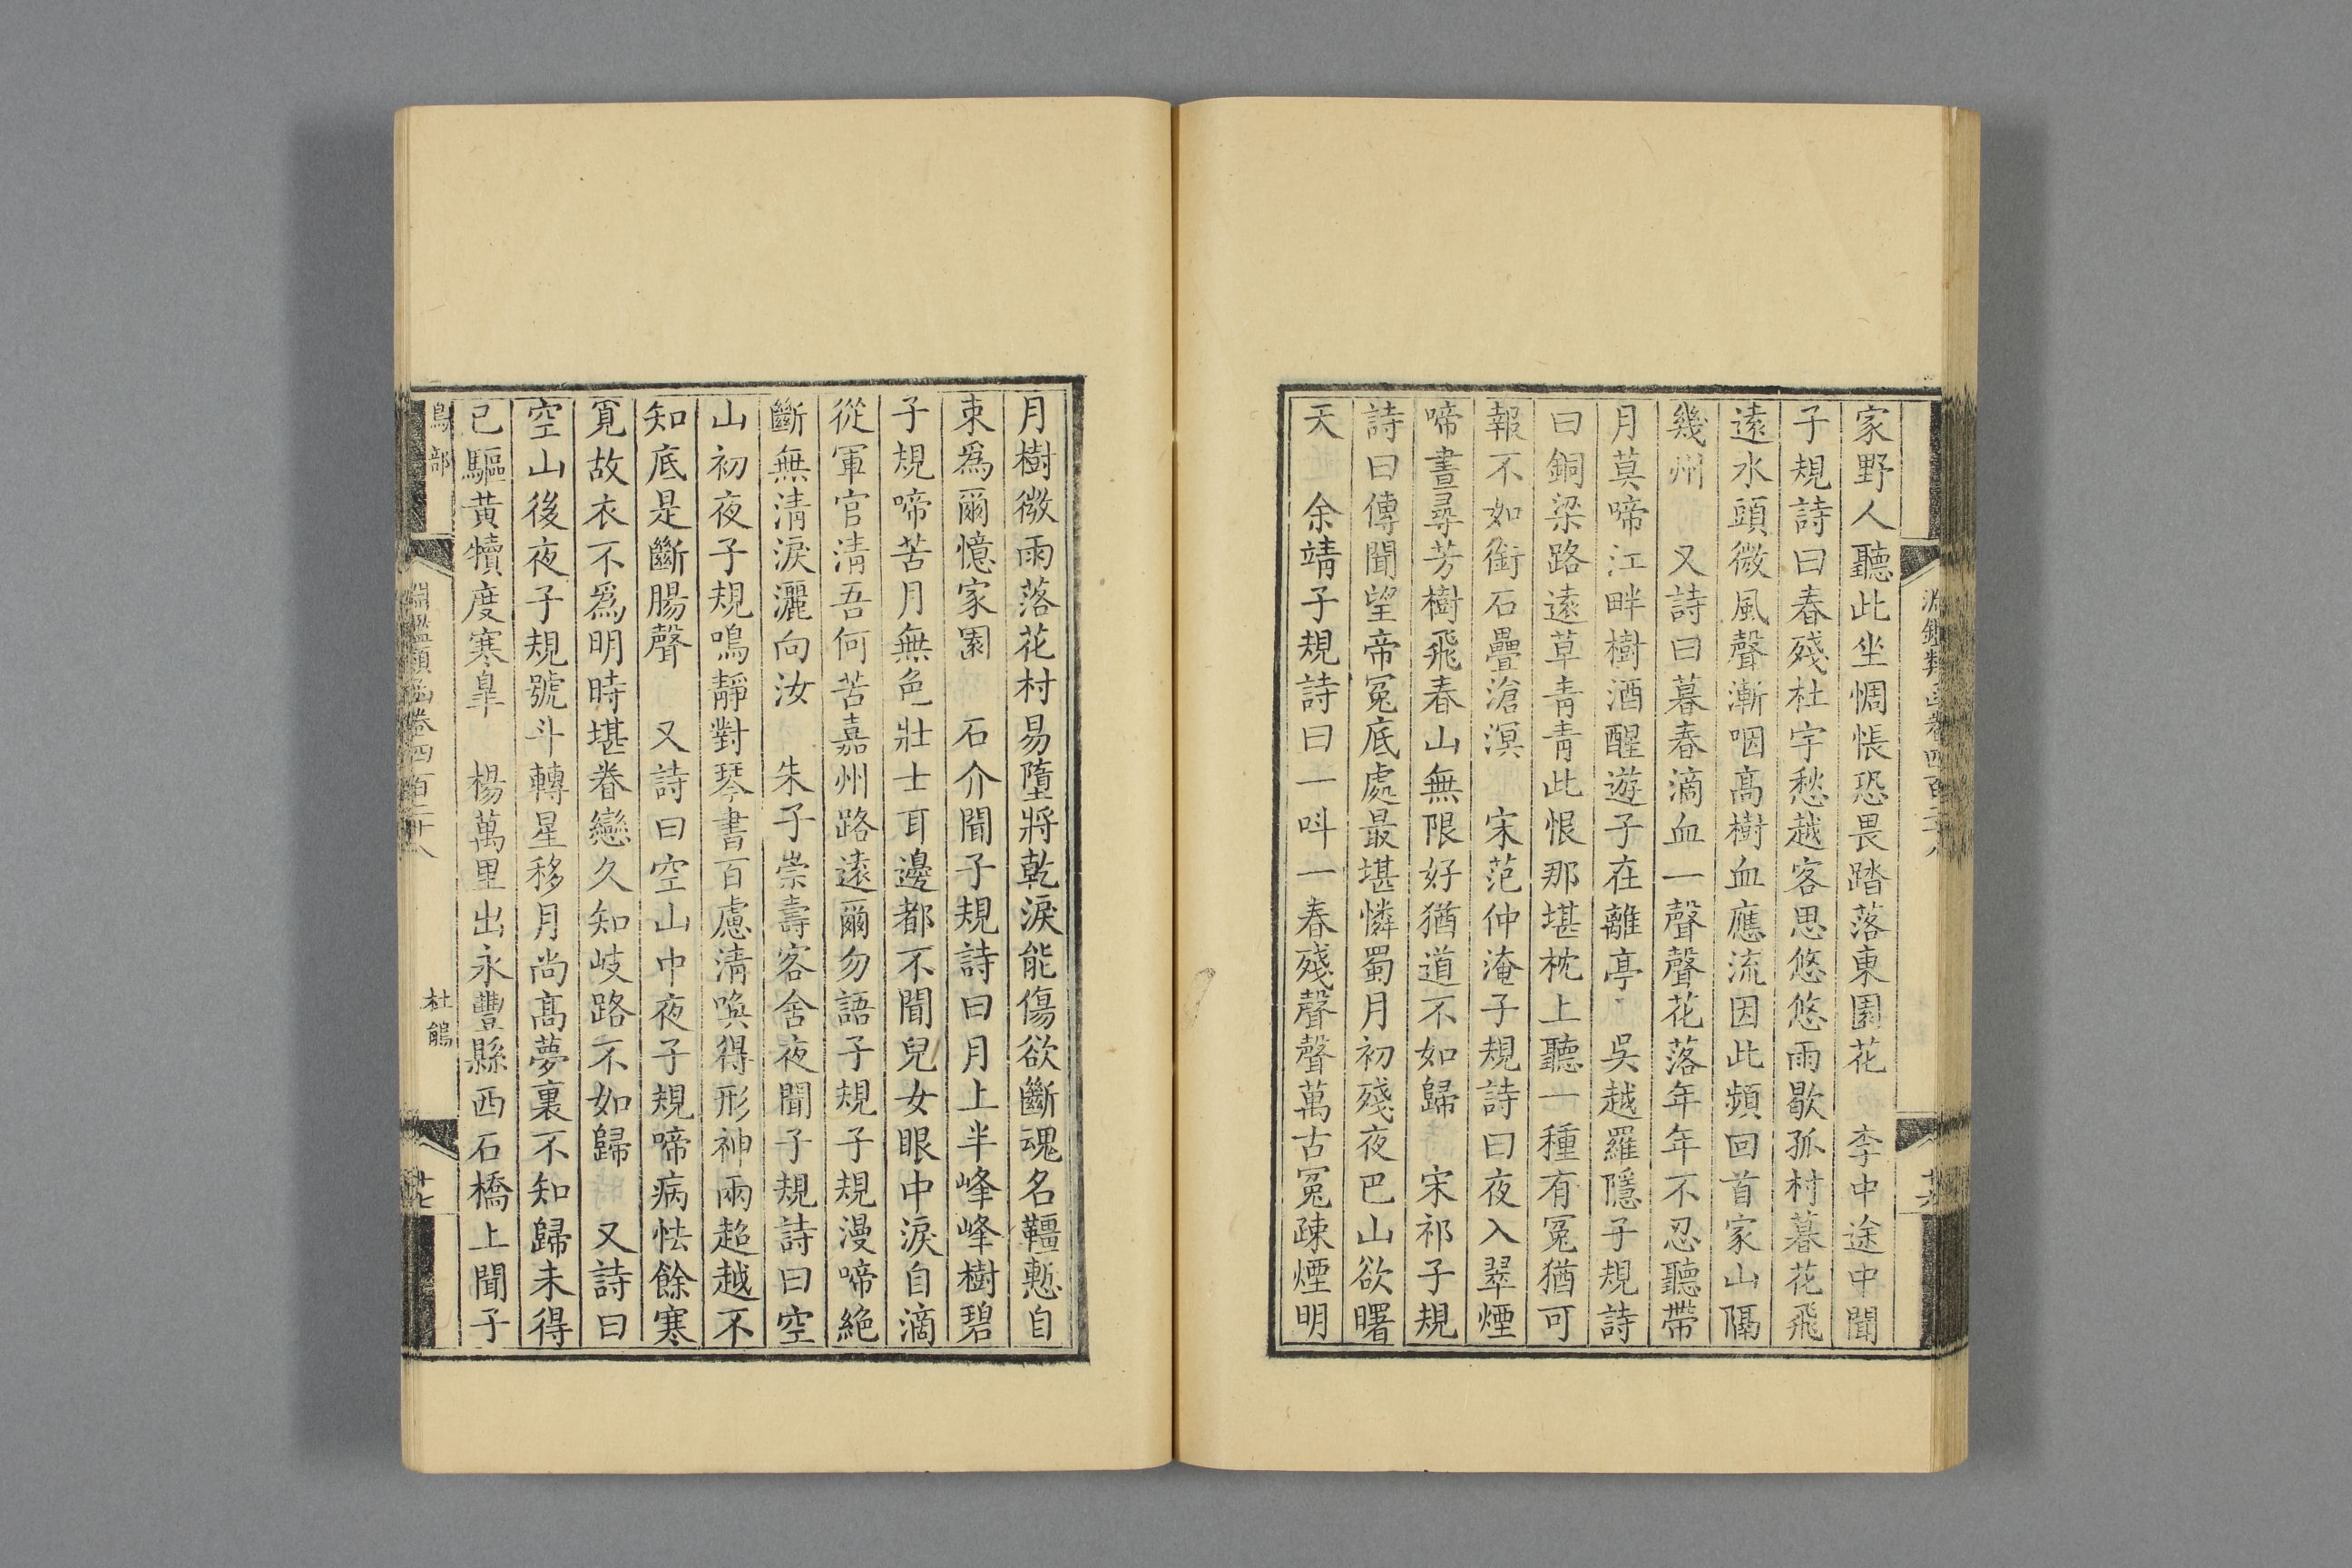 家野人聽此坐惆悵恐畏踏落東園花　李中途中聞
子規詩曰春殘杜宇愁越客思悠悠雨歇孤村暮花飛
遠水頭微風聲漸咽高樹血應流因此頻回首家山隔
幾州　又詩曰暮春滴血一聲聲花落年年不忍聽帶
月莫啼江畔樹酒醒遊子在離亭　吳越羅隱子規詩
曰銅梁路遠草青青此恨那堪枕上聽一種有冤猶可
報不如銜石疊滄溟　宋范仲淹子規詩曰夜入翠煙
啼晝尋芳樹飛春山無限好猶道不如歸　宋祁子規
詩曰傳聞望帝冤底處最堪憐蜀月初殘夜巴山欲曙
天　余靖子規詩曰一呌一春殘聲聲萬古冤疎煙明
月樹微雨落花村易墮將乾淚能傷欲斷魂名韁慙自
束為爾憶家園　石介聞子規詩曰月上半峰峰樹碧
子規啼苦月無色壯士耳邊都不聞兒女眼中淚自滴
從軍官清吾何苦嘉州路遠爾勿語子規子規漫啼絕
斷無清淚灑向汝　朱子崇壽客舍夜聞子規詩曰空
山初夜子規鳴靜對琴書百慮清喚得形神兩超越不
知底是斷腸聲　又詩曰空山中夜子規啼病怯餘寒
覓故衣不為明時堪眷戀久知岐路不如歸　又詩曰
空山後夜子規號斗轉星移月尚高夢裏不知歸未得
已驅黃犢度寒臯　楊萬里出永豐縣西石橋上聞子
鳥部
淵鑑類函卷四百二十八
杜鵑
廿七